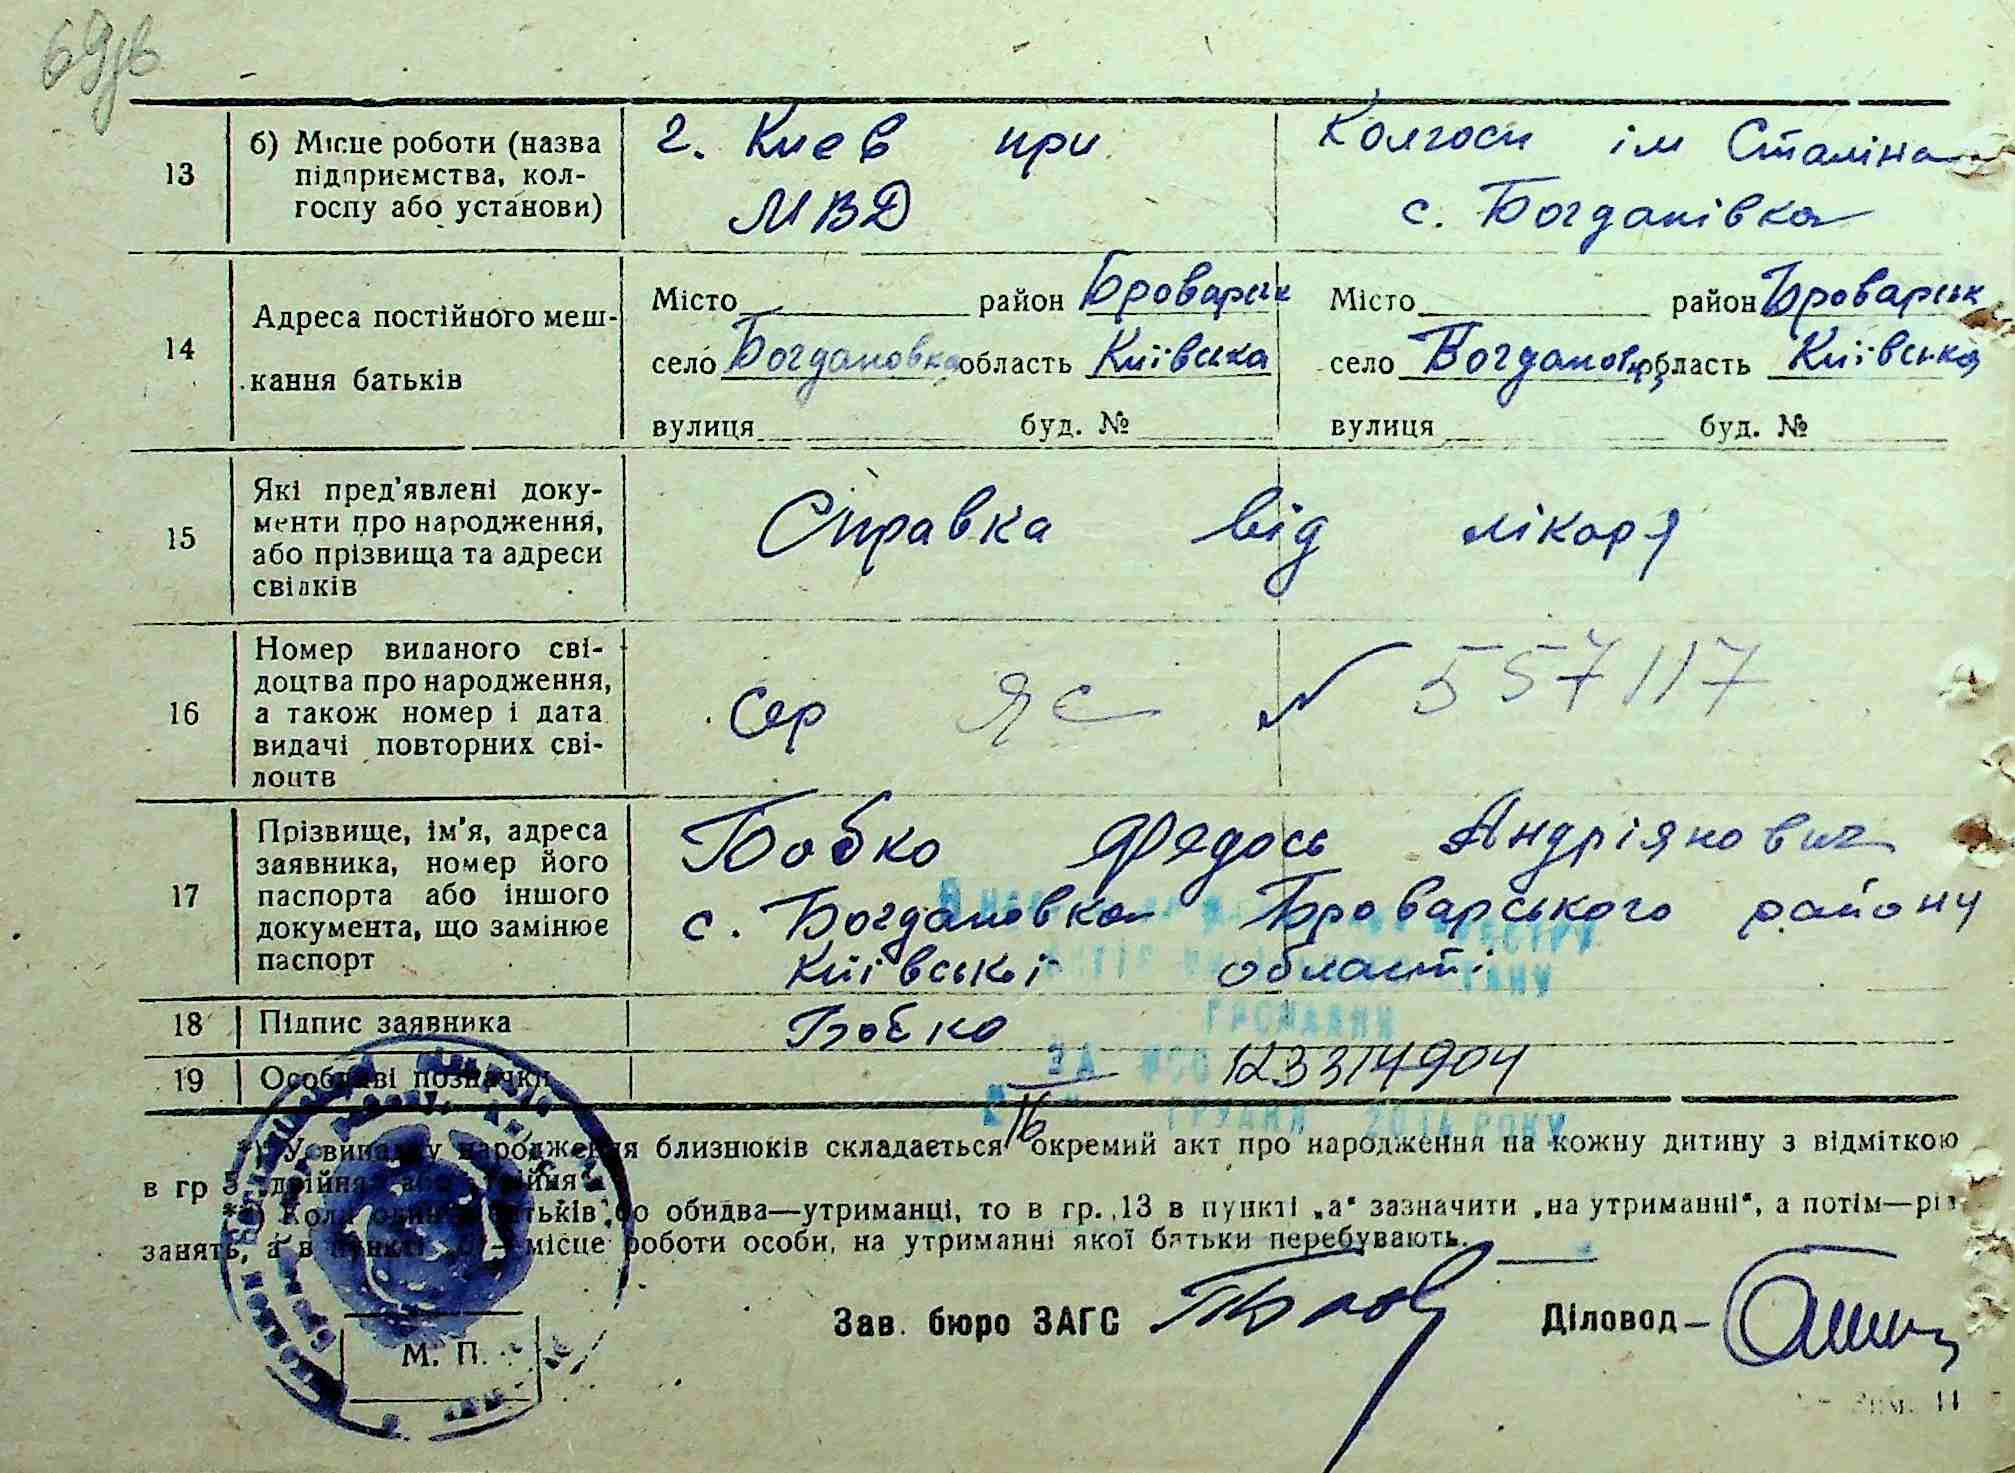 13
б) Місце роботи (назва
підприємства, кол-
госпу або установи)
г. Киев при
МВД
Колгосп ім Сталіна
с. Богданівка
14
Адреса постійного меш-
кання батьків
Місто район Броварськ
село Богдановка область Київська
вулиця буд. №
Місто район Броварськ
село Богдановка область Київська
вулиця буд. №
15
Які пред'явлені доку-
менти про народження,
або прізвища та адреси
свідків
Справка від лікаря
16
Номер виданого сві-
доцтва про народження,
а також номер і дата
видачі повторних сві-
доцтв
сер ЯЄ № 557117
17
Прізвище, ім'я, адреса
заявника, номер його
паспорта або іншого
документа, що замінює
паспорт
Бобко Федось Андріянович
с. Богдановка Броварського району
Київської області
18
Підпис заявника
Бобко
19
Особливі позначки
ГРОМАДЯН
ЗА № 123314904
16 ГРУДНЯ 2014 РОКУ
*) У випадку народження близнюків складається окремий акт про народження на кожну дитину з відміткою
в гр 5 „двійня" або „трійня".
**) Коли один з батьків, або обидва—утриманці, то в гр. 13 в пункті „а" зазначити „на утриманні", а потім—рід
занять, а в пункті „б"—місце роботи особи, на утриманні якої батьки перебувають.
Зав. бюро ЗАГС
Діловод
М. П.